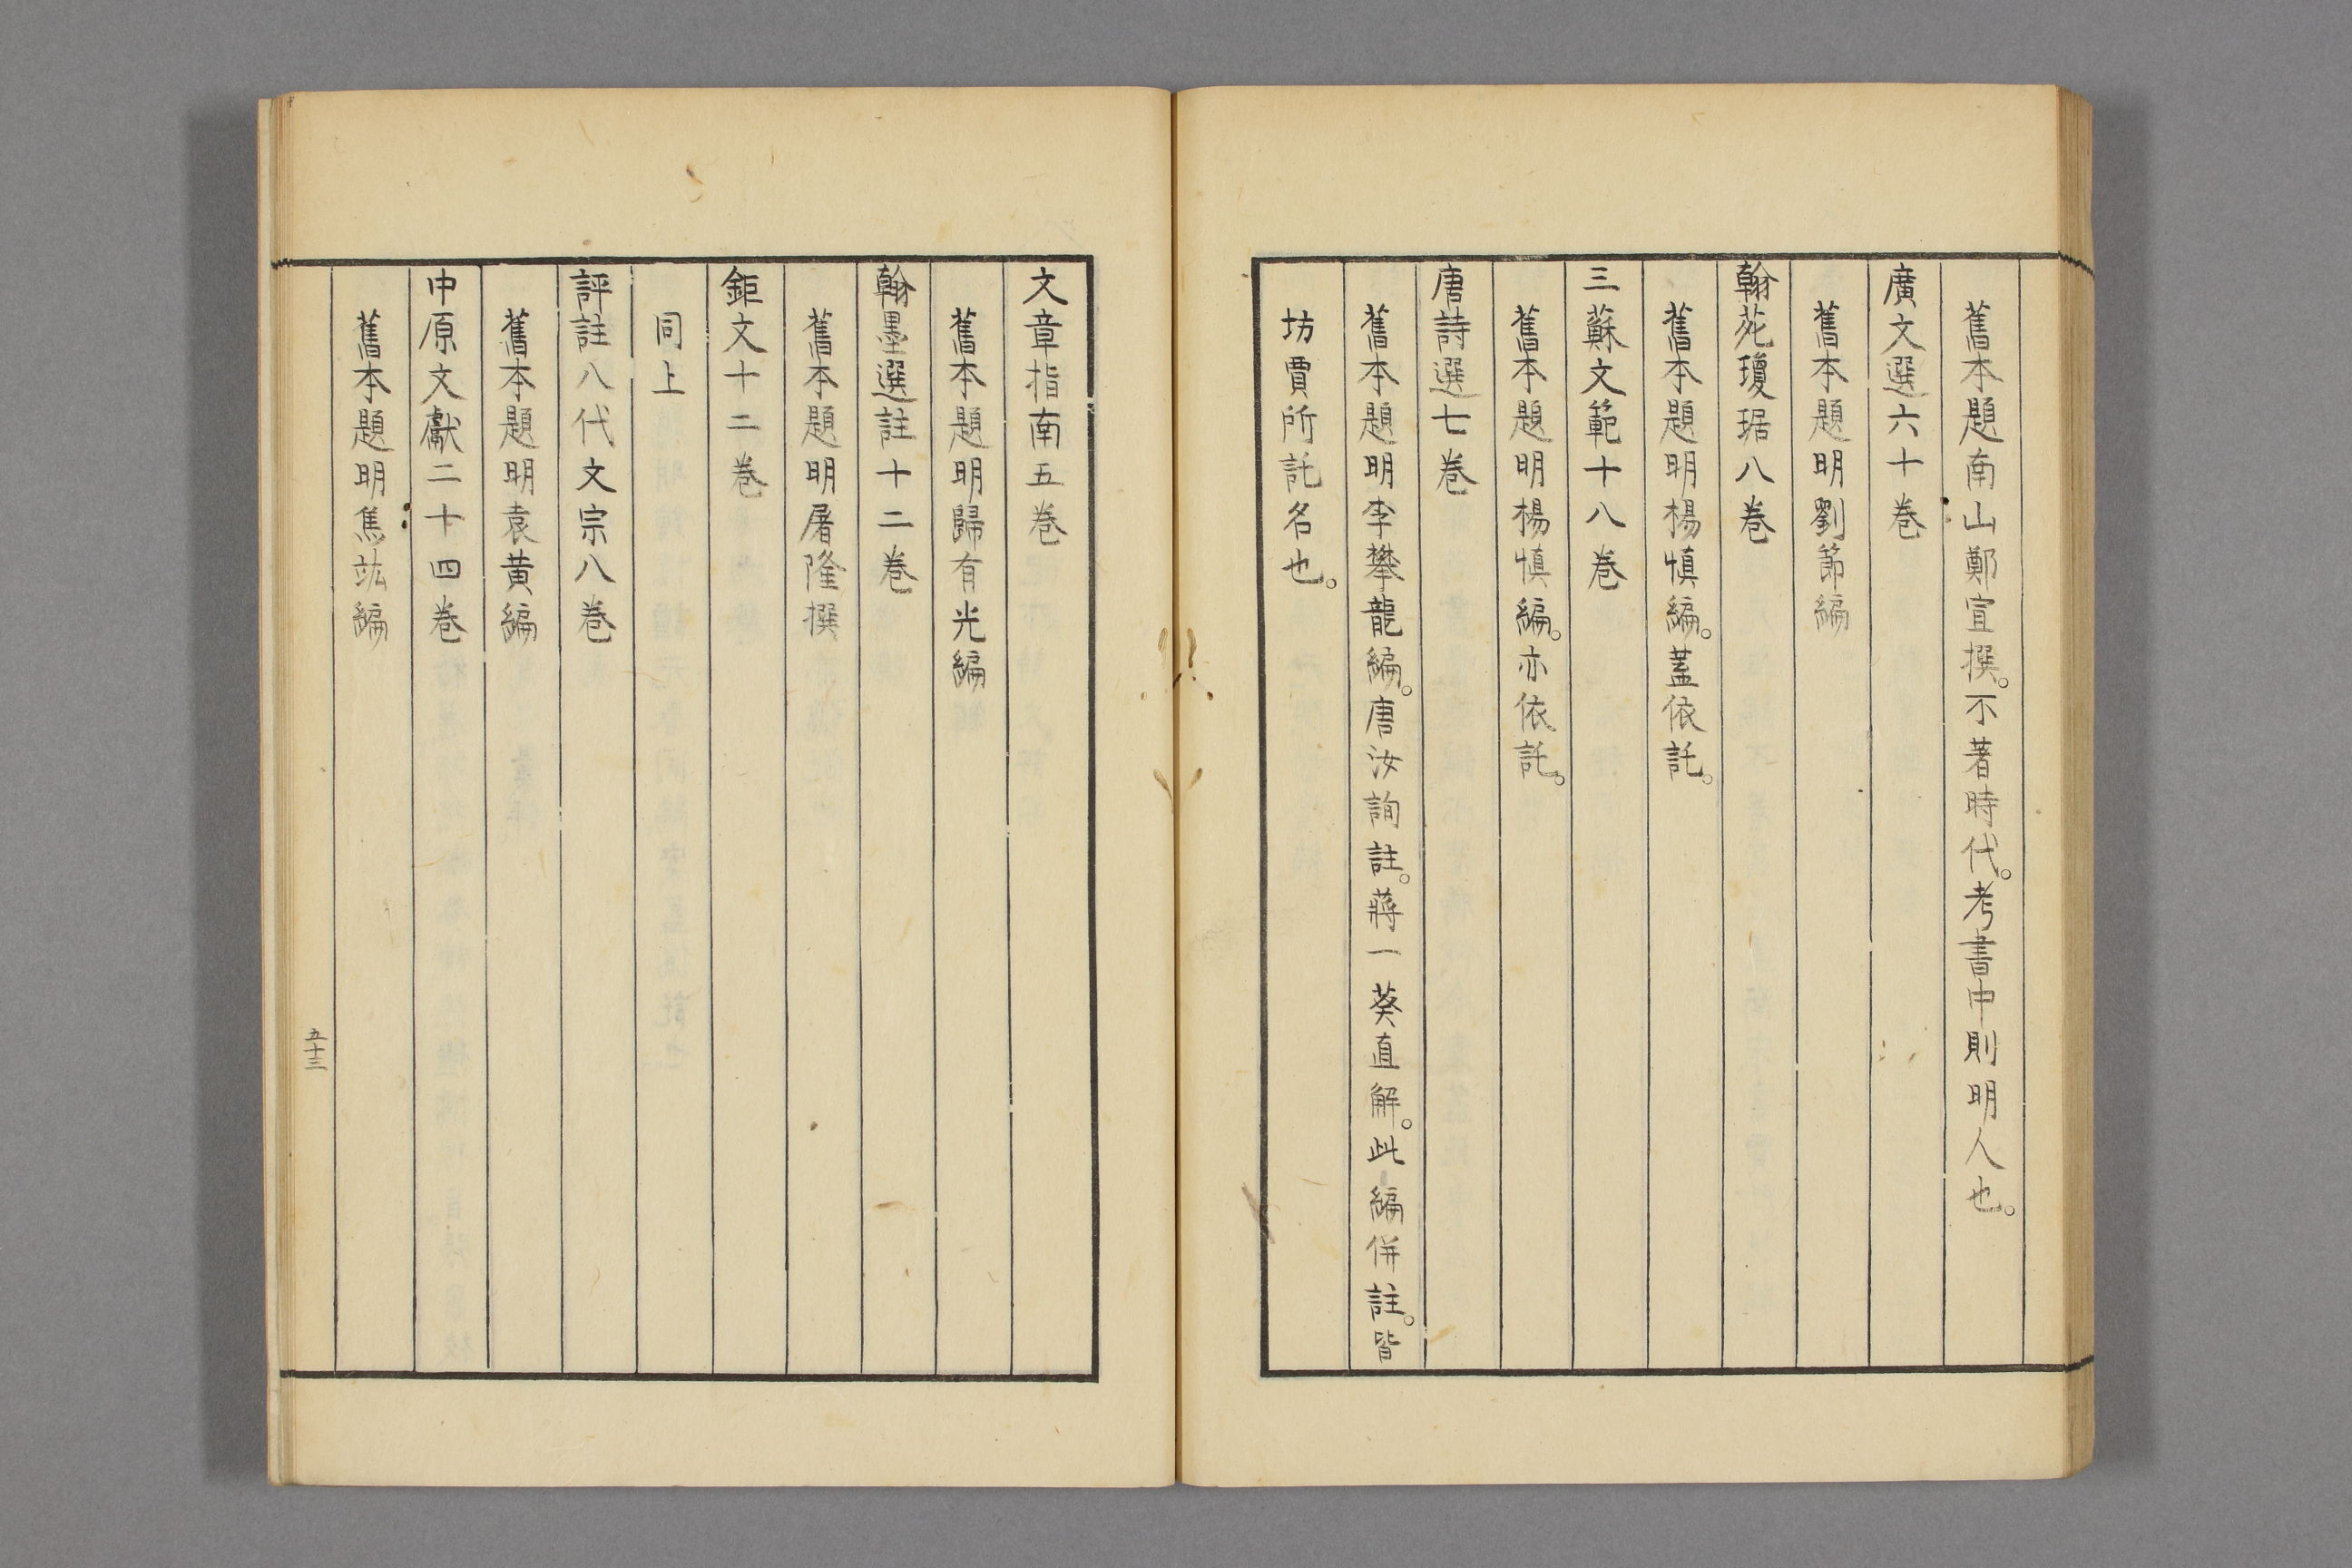 舊本題南山鄭宣撰。不著時代。考書中則明人也。
廣文選六十卷
舊本題明劉節編
翰苑瓊琚八卷
舊本題明楊慎編。蓋依託。
三蘇文範十八卷
舊本題明楊慎編。亦依託。
唐詩選七卷
舊本題明李攀龍編。唐汝詢註。蔣一葵直解。此編併註。皆
坊賈所託名也。
文章指南五卷
舊本題明歸有光編
翰墨選註十二卷
舊本題明屠隆撰
鉅文十二卷
同上
評註八代文宗八卷
舊本題明袁黄編
中原文獻二十四卷
舊本題明焦竑編
五十三